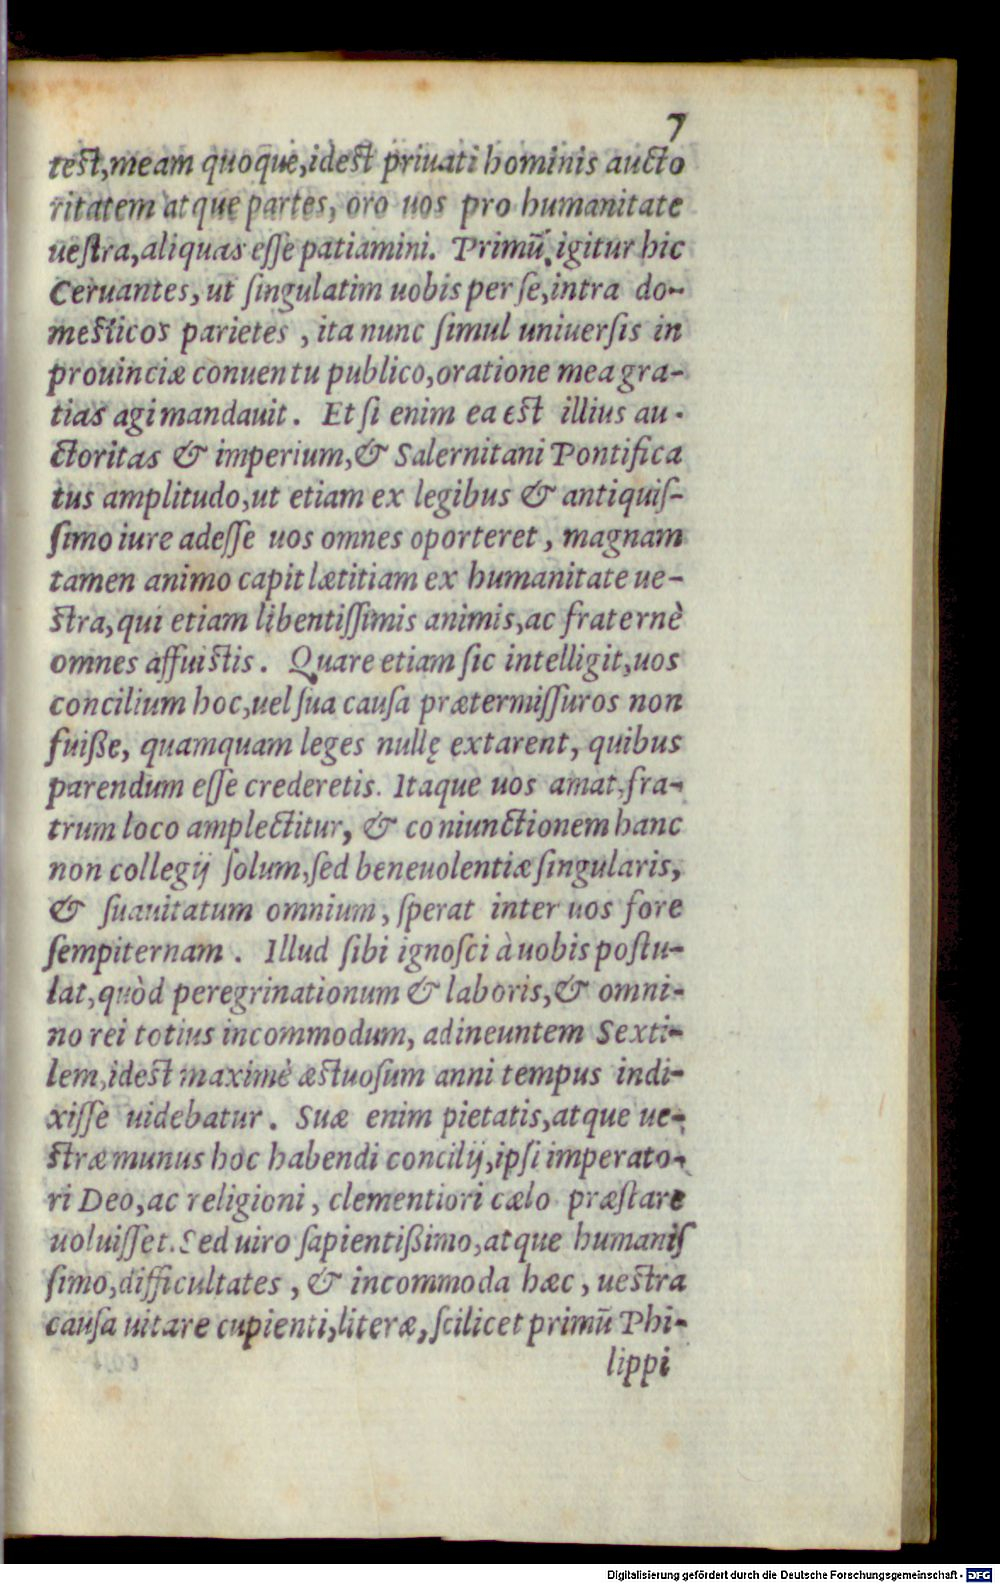 7
test, meam quoque, idest priuati hominis aucto
ritatem atque partes, oro uos pro humanitate
uestra, aliquas esse patiamini. Primũ igitur hic
Ceruantes, ut singulatim uobis per se, intra do-
mesticos parietes, ita nunc simul uniuersis in
prouinciæ conuentu publico, oratione mea gra-
tias agi mandauit. Et si enim ea est illius au-
ctoritas & imperium, & Salernitani Pontifica
tus amplitudo, ut etiam ex legibus & antiquis-
simo iure adesse uos omnes oporteret, magnam
tamen animo capit lætitiam ex humanitate ue-
stra, qui etiam libentissimis animis, ac fraternè
omnes affuistis. Quare etiam sic intelligit, uos
concilium hoc, uel sua causa prætermissuros non
fuiße, quamquam leges nullę extarent, quibus
parendum esse crederetis. Itaque uos amat, fra-
trum loco amplectitur, & coniunctionem hanc
non collegij solum, sed beneuolentiæ singularis,
& suauitatum omnium, sperat inter uos fore
sempiternam. Illud sibi ignosci à uobis postu-
lat, quòd peregrinationum & laboris, & omni-
no rei totius incommodum, ad ineuntem Sexti-
lem, idest maximè æstuosum anni tempus indi-
xisse uidebatur. Suæ enim pietatis, atque ue-
stræ munus hoc habendi concilij, ipsi imperato-
ri Deo, ac religioni, clementiori cælo præstare
uoluisset. Sed uiro sapientißimo, atque humanis
simo, difficultates, & incommoda hæc, uestra
causa uitare cupienti, literæ, scilicet primũ Phi-
lippi
Digitalisierung gefördert durch die Deutsche Forschungsgemeinschaft - DFG